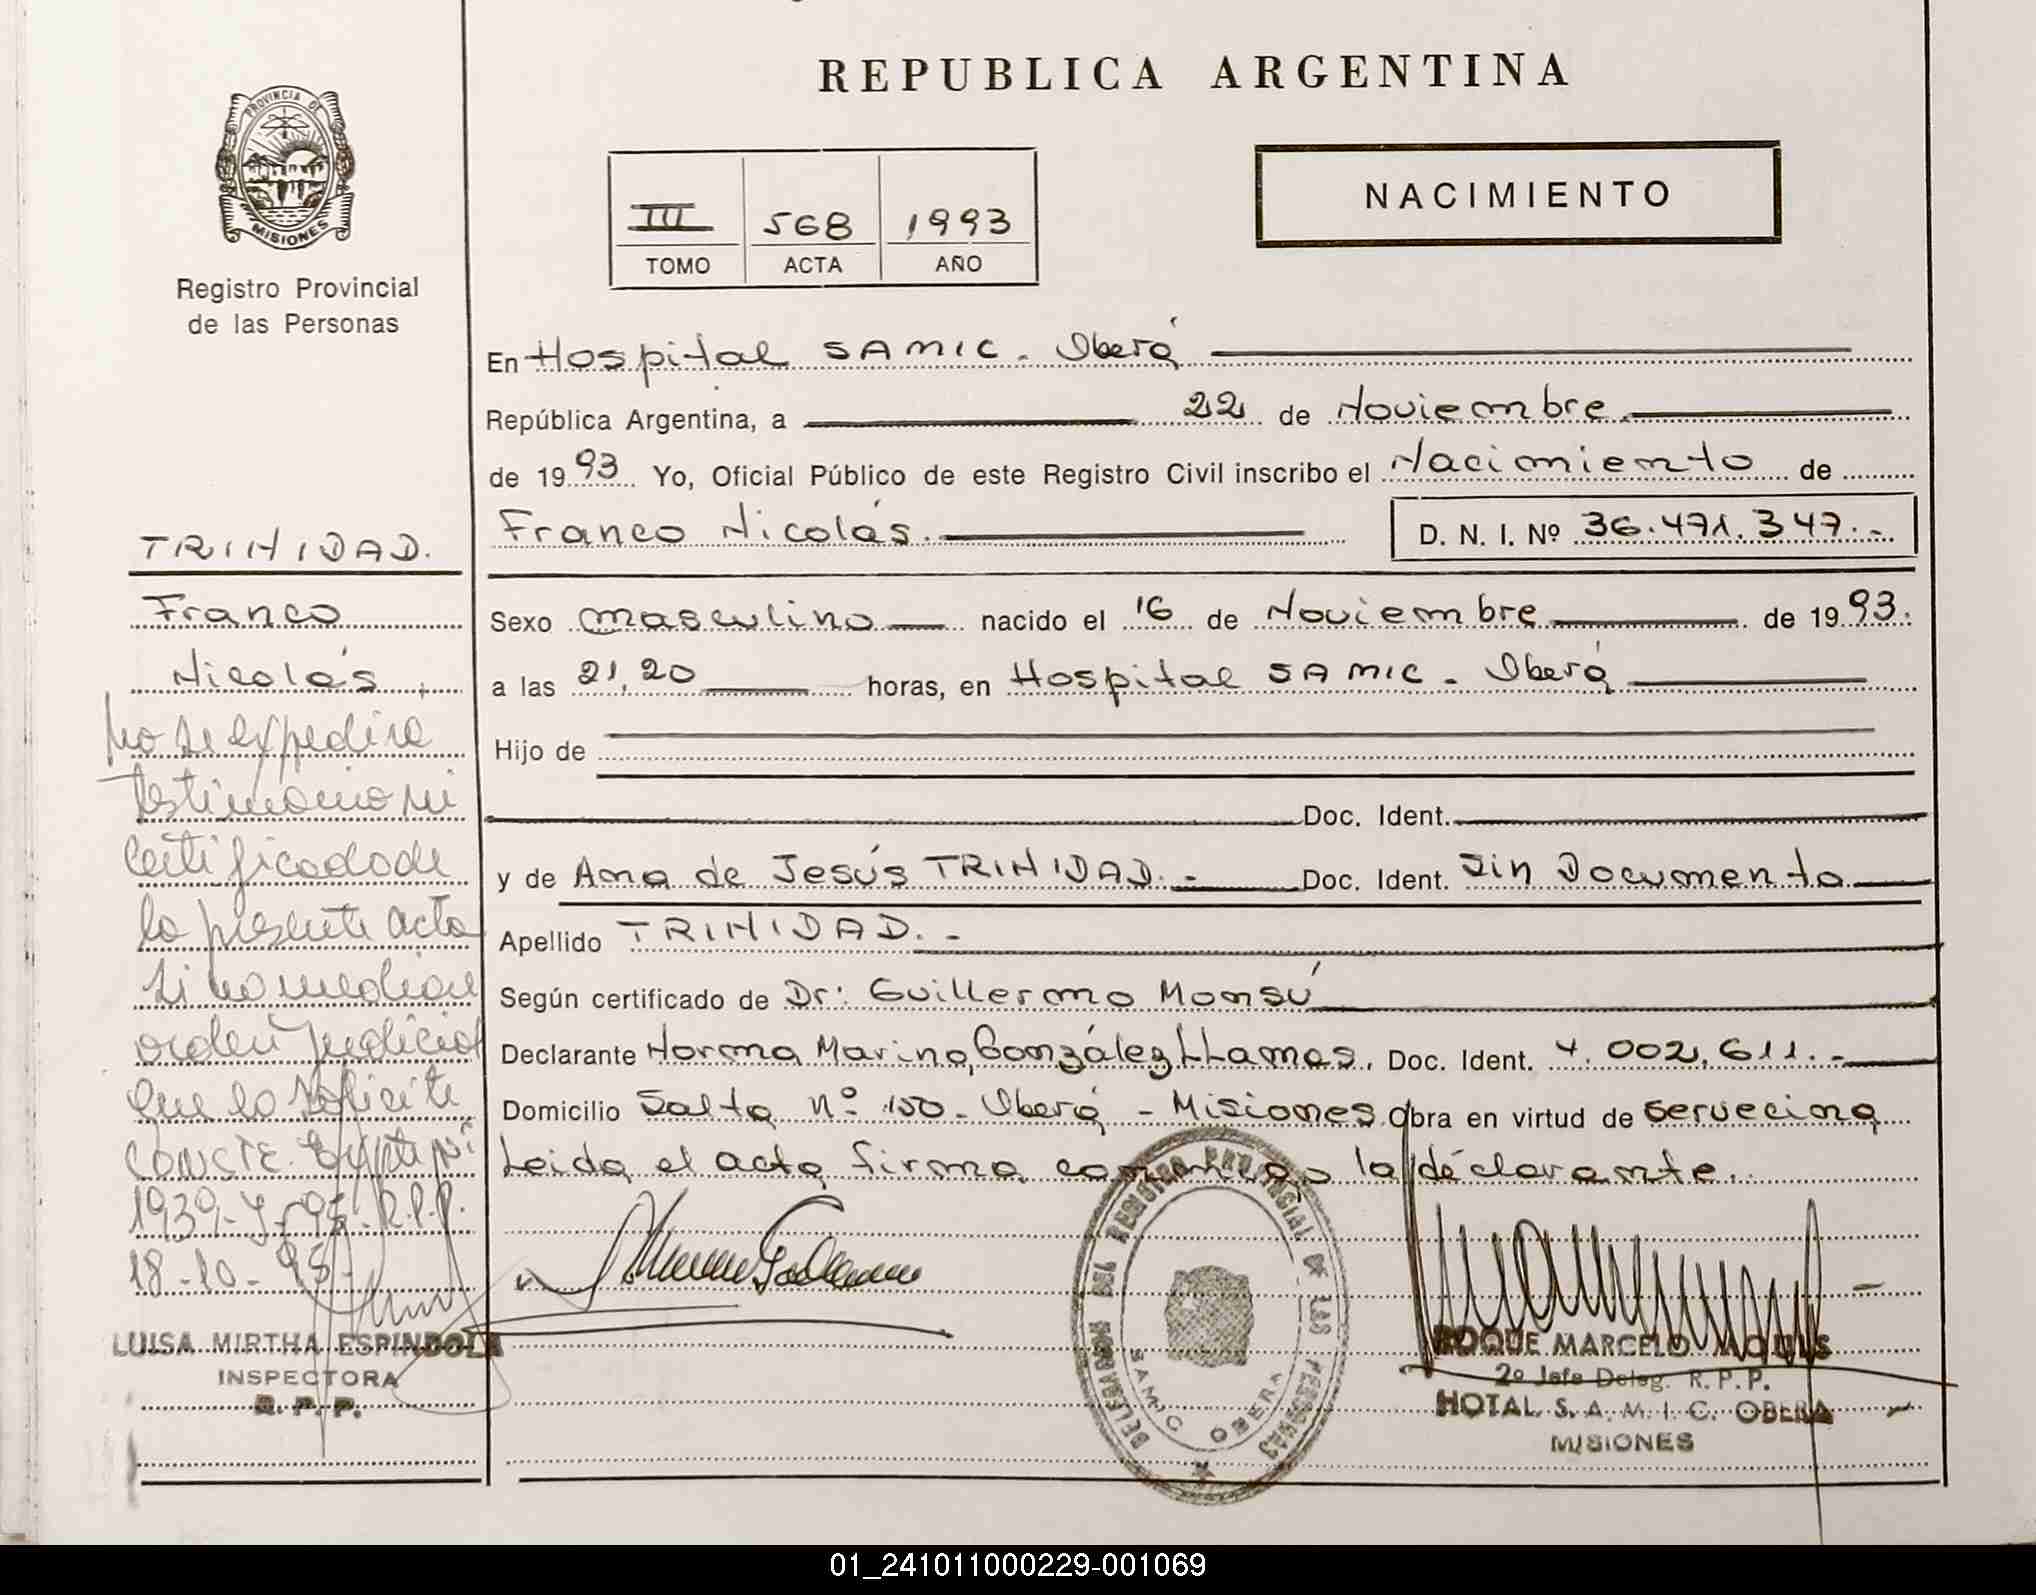 REPUBLICA ARGENTINA
PROVINCIA DE
MISIONES
Registro Provincial
de las Personas
NACIMIENTO
III 568 1993
TOMO ACTA AÑO
En Hospital SAMIC - Oberá
República Argentina, a 22 de Noviembre
de 1993 Yo, Oficial Público de este Registro Civil inscribo el Nacimiento de
Franco Nicolás.
D. N. I. Nº 36.471.347.-
Sexo masculino nacido el 16 de Noviembre de 1993.
a las 21,20 horas, en Hospital SAMIC - Oberá
Hijo de
Doc. Ident.
y de Ana de Jesús TRINIDAD.- Doc. Ident. Sin Documento
Apellido TRINIDAD.-
Según certificado de Dr: Guillermo Monsú
Declarante Norma Marina González LLamas, Doc. Ident. 4.002,611.-
Domicilio Salta nº 150- Oberá - Misiones Obra en virtud de servecina
Leida el acta firma conmigo la declarante.
TRINIDAD.
Franco
Nicolás
No se expedira
testimonio ni
certificado de
la presente acta
si no mediare
orden judicial
que lo solicite
CONSTE. Expte Nº
1939-Y-95- R.P.P.
18-10-95-
LUISA MIRTHA ESPINDOLA
INSPECTORA
R. P. P.
DELEGACION DEL REGISTRO PROVINCIAL DE LAS PERSONAS
SAMIC OBERA
ROQUE MARCELO
2º Jefe Deleg. R. P. P.
HOTAL. S. A. M. I. C. OBERA
MISIONES
01_241011000229-001069